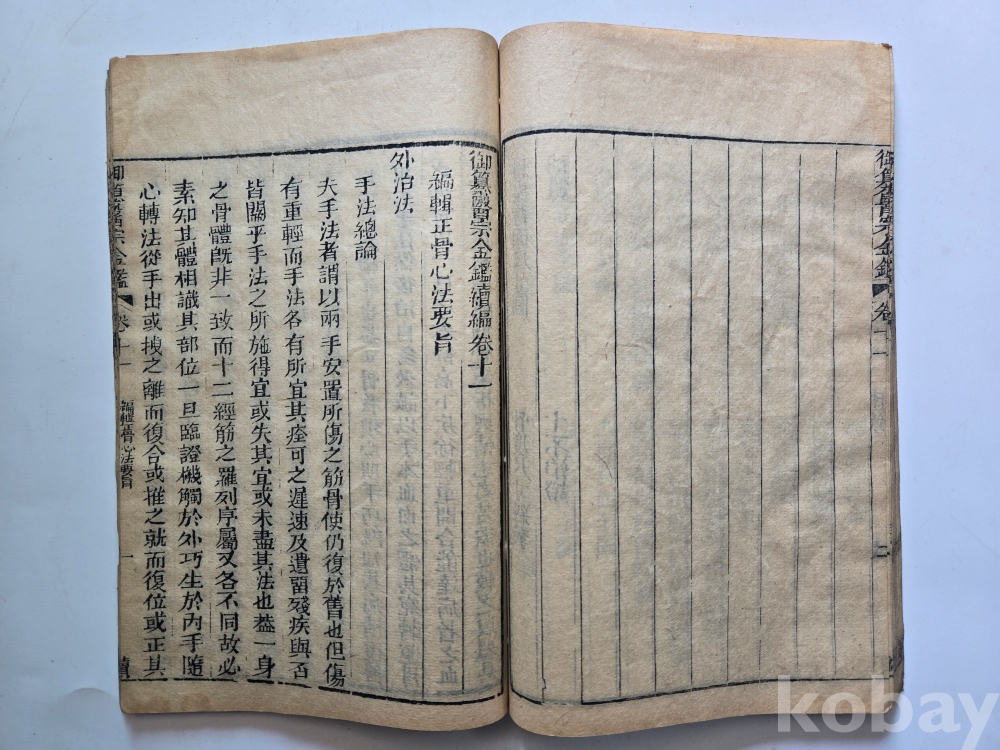 御纂醫宗金鑑 卷十一 二
御纂醫宗金鑑續編卷十一
編輯正骨心法要旨
外治法
手法總論
夫手法者謂以兩手安置所傷之筋骨使仍復於舊也但傷
有重輕而手法各有所宜其痊可之遲速及遺留殘疾與否
皆關乎手法之所施得宜或失其宜或未盡其法也蓋一身
之骨體旣非一致而十二經筋之羅列序屬又各不同故必
素知其體相識其部位一旦臨證機觸於外巧生於內手隨
心轉法從手出或拽之離而復合或推之就而復位或正其
御纂醫宗金鑑 卷十一 編輯正骨心法要旨 一
kobay